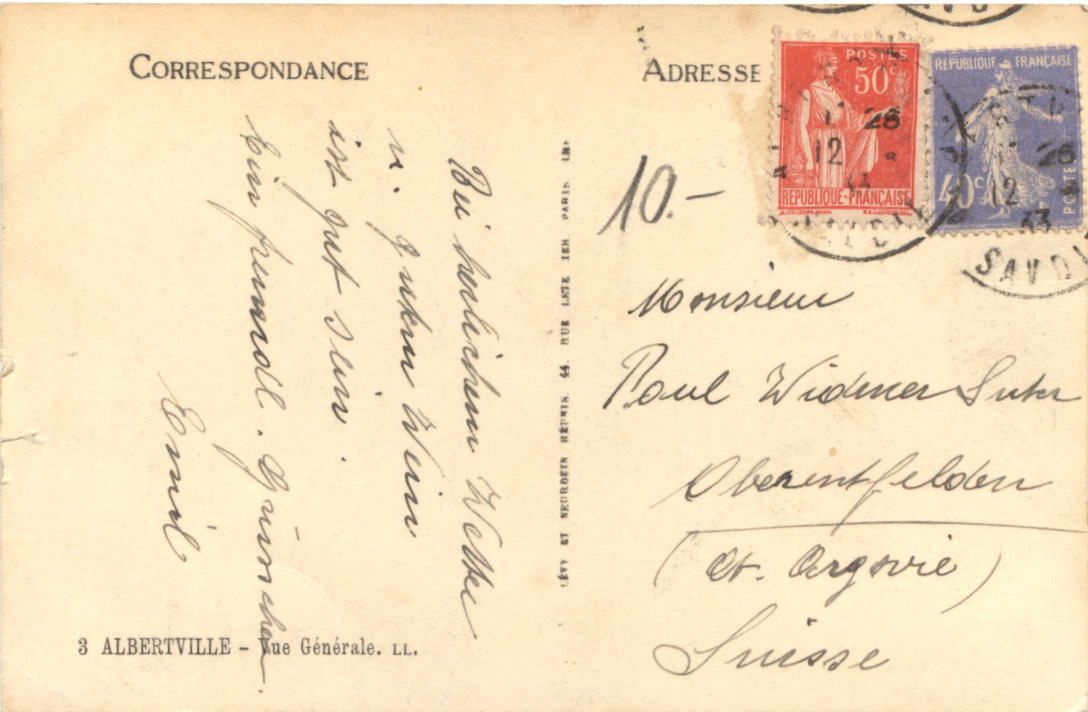 CORRESPONDANCE
ADRESSE
POSTES
50c
RÉPUBLIQUE-FRANÇAISE
RÉPUBLIQUE FRANÇAISE
40c
POSTES
28
12
26
12
33
SAVOIE
10.-
Bei herlichem Wetter
u. gutem Wein
ist gut sein.
Ein freundl.
Emil
LÉVY ET NEURDEIN RÉUNIS. 44. RUE LETELLIER PARIS IMP.
Monsieur
Paul Widmer Suter
Oberentfelden
(Ct. Argovie)
Suisse
3 ALBERTVILLE – Vue Générale. LL.